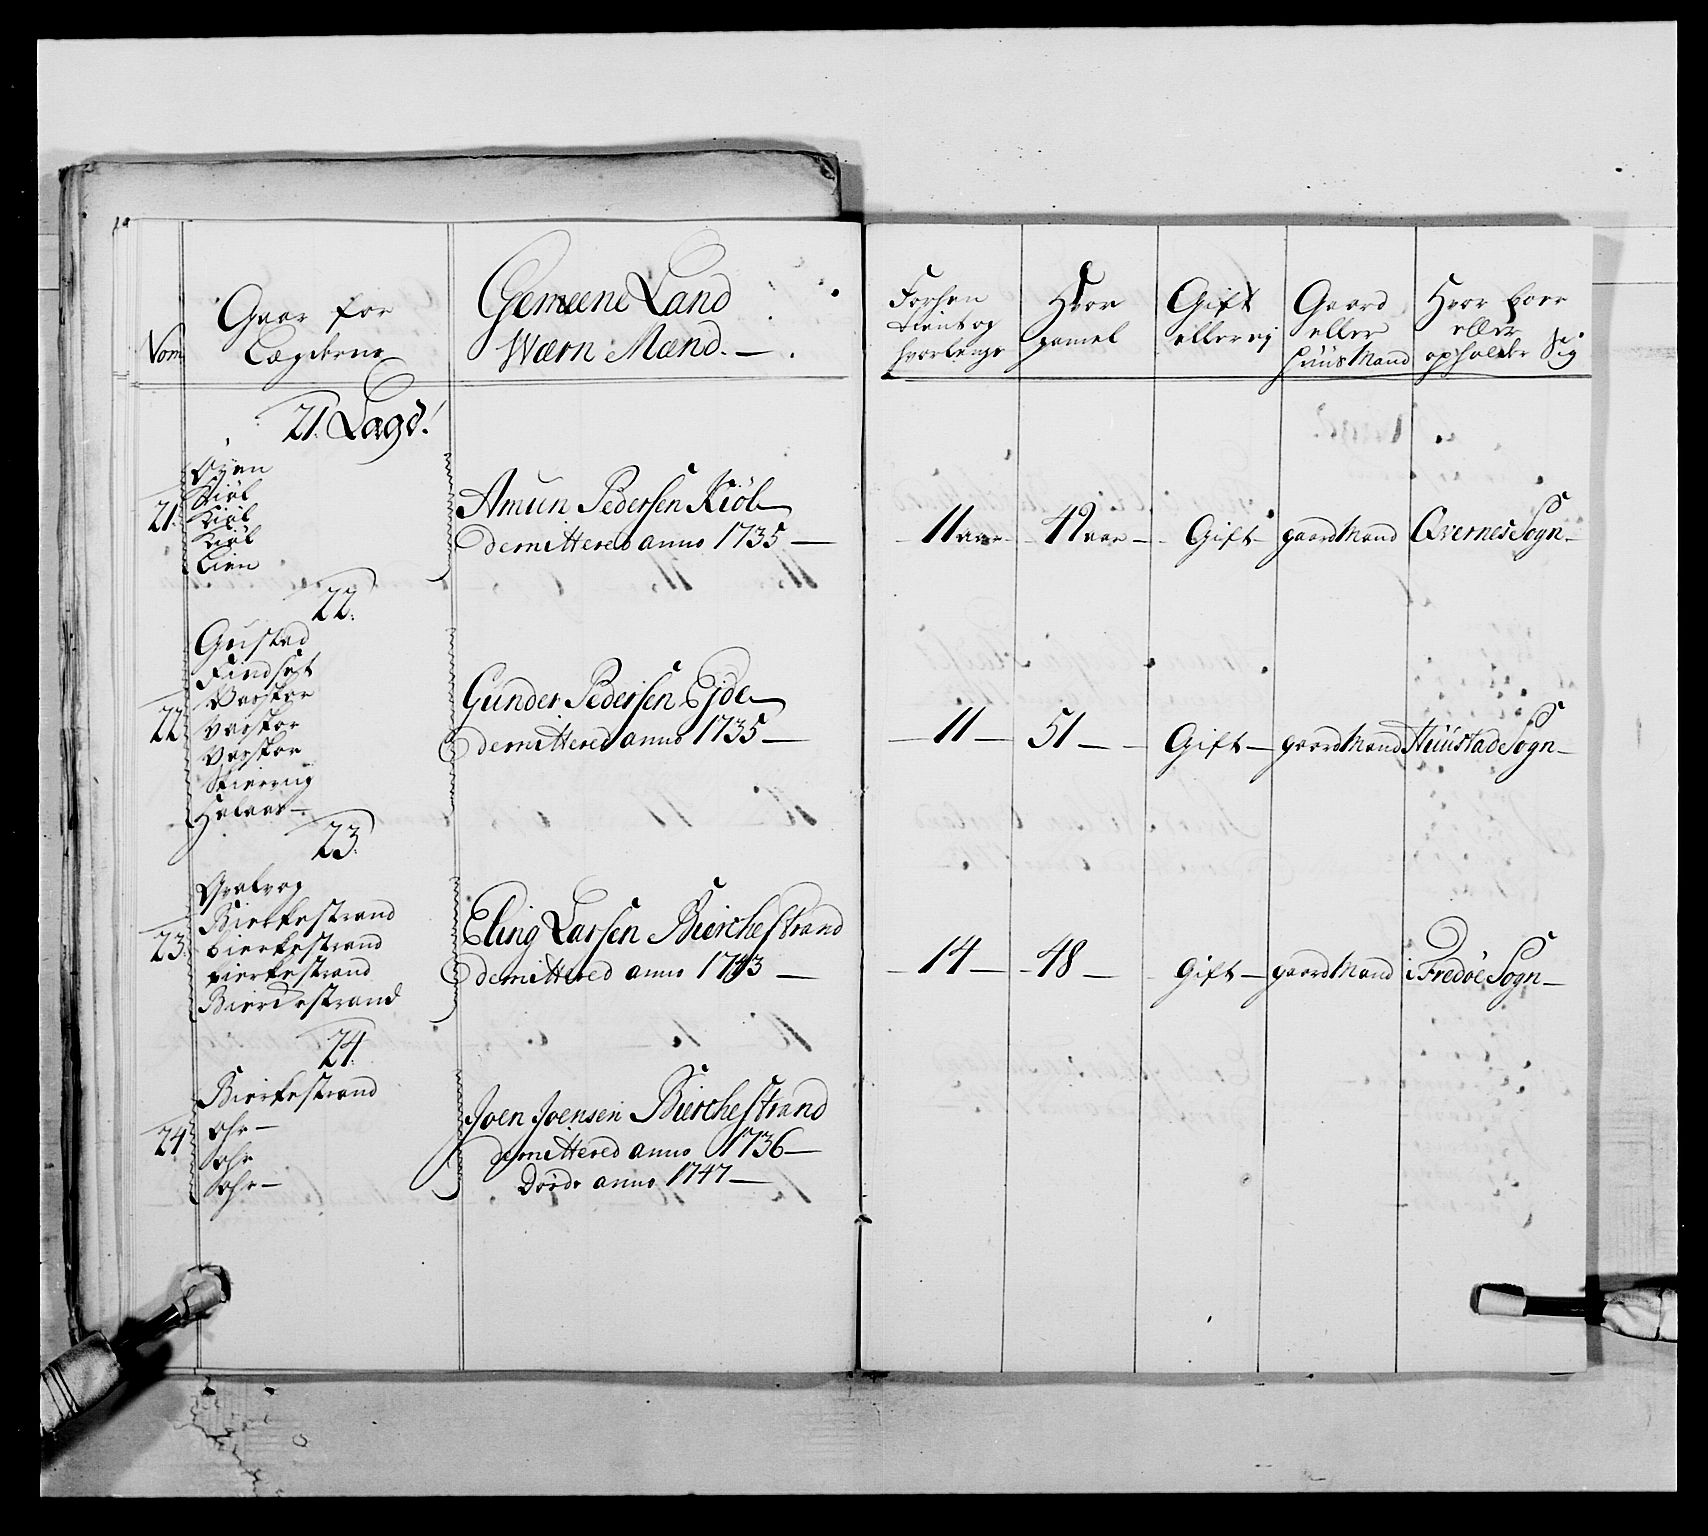 Nom
Gaar for
Lægderne
Gemeene Land
Wærn Mænd. —
Forhen
tient og
hvorlenge
Hvor
gamel
Gift
eller ej
Gaard
eller
Huus Mand
Hvor boer
eller
opholder Sig
21 Lagd!
Øyen
Kiøl
Kiøl
Kiøl
Lien
21
Amun Pedersen Kiøl
demittered anno 1735 —
11 aar
42 aar
Gift
gaard Mand
Qvernes Sogn
22
Gustad
Findset
Varskor
Varskor
Varskor
Halaas
22
Gunder Pedersen Ejde
demittered anno 1735 —
11
51
Gift
gaard Mand
Huustad Sogn
23
Bierkestrand
bierkestrand
bierkestrand
Bierckestrand
23
Eling Larsen Bierchestrand
demittered anno 1733 —
14
48
gift
gaard Mand
i Fredøe Sogn
24
Bierkestrand
24
Joen Joensen Bierchestrand
demittered anno 1736 —
Døde anno 1747 —